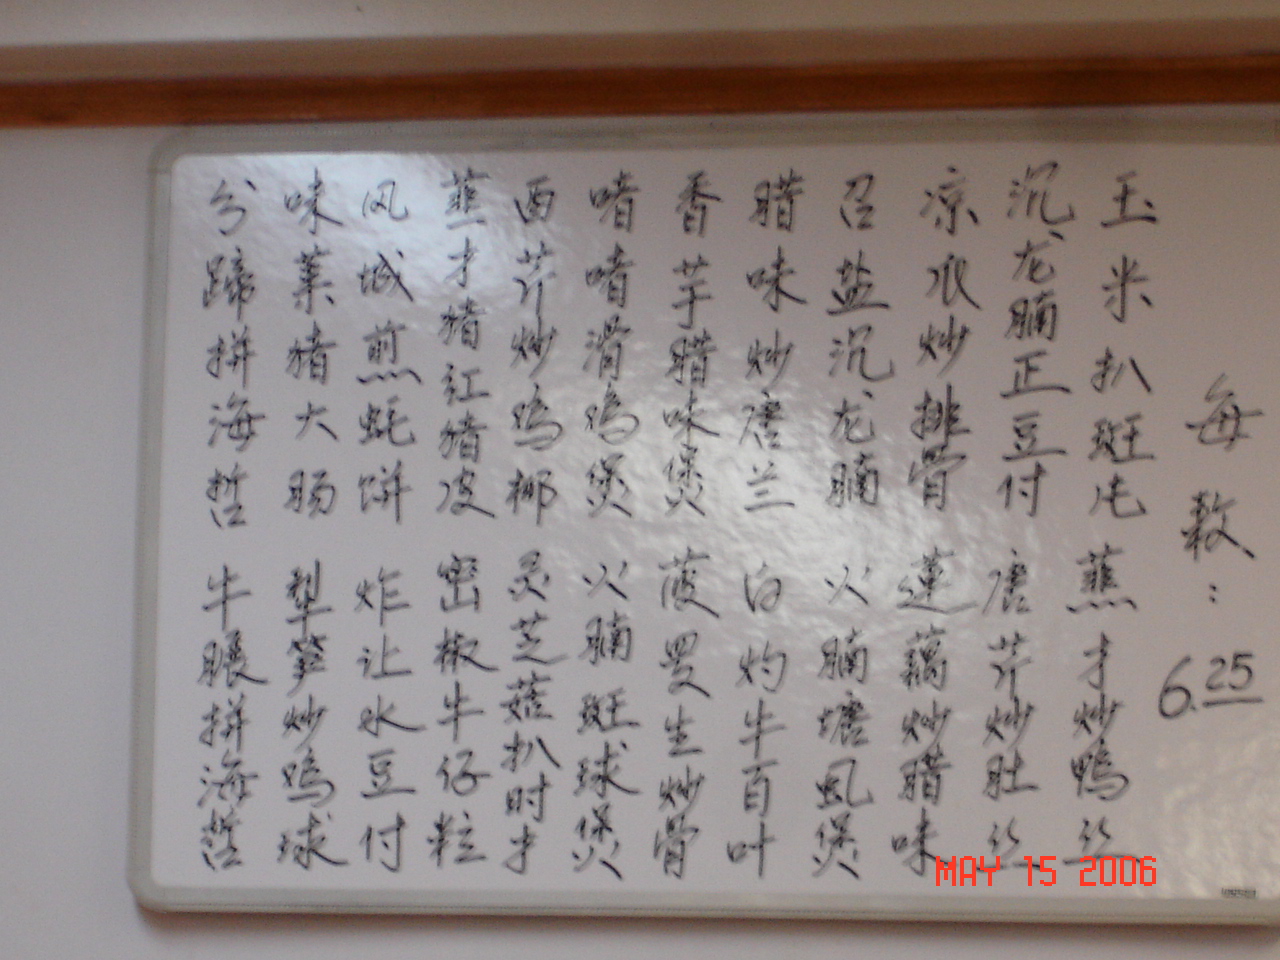 每敖：6.25
玉米扒斑庉
蒸才炒鸭丝
沉龙腩正豆付
唐芹炒肚丝
凉衣炒排骨
莲藕炒腊味
召盐沉龙腩
火腩塘虱煲
腊味炒唐兰
白灼牛百叶
香芋腊味煲
菠罗生炒骨
啫啫滑鸡煲
火腩斑球煲
西芹炒鸡柳
灵芝菇扒时才
韮才猪红猪皮
密椒牛仔粒
风城煎蚝饼
炸让水豆付
味菜猪大肠
笋炒鸡球
分蹄拼海哲
牛𦟌拼海蜇
MAY 15 2006